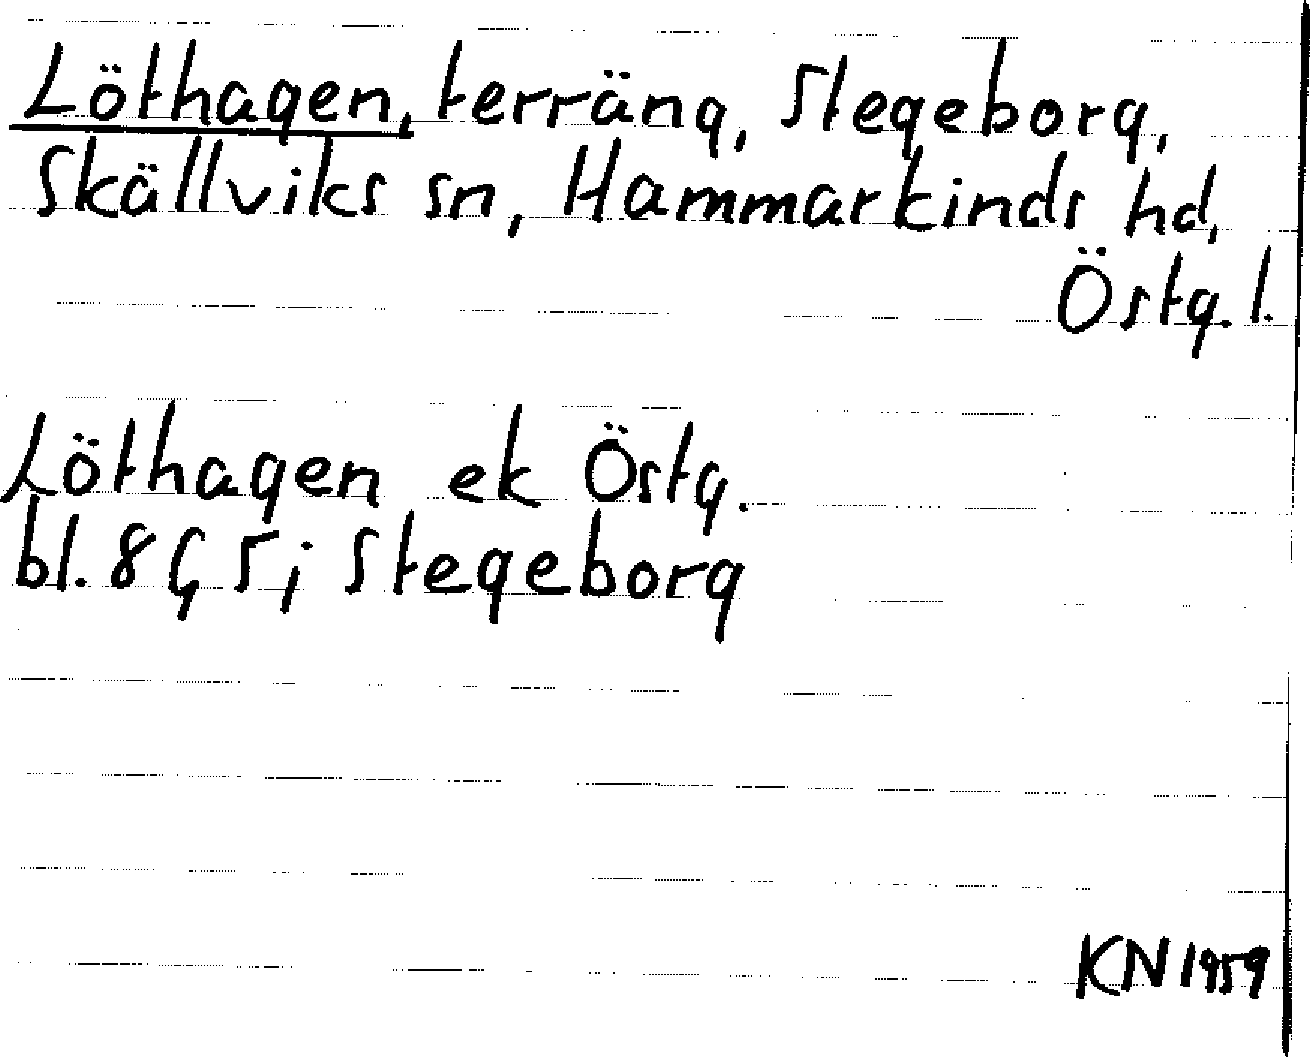 Löthagen, terräng, Stegeborg,
Skällviks sn, Hammarkinds hd,
Östg. l.
Löthagen ek Östg.
bl. 8 G 5 i Stegeborg
KN 1959